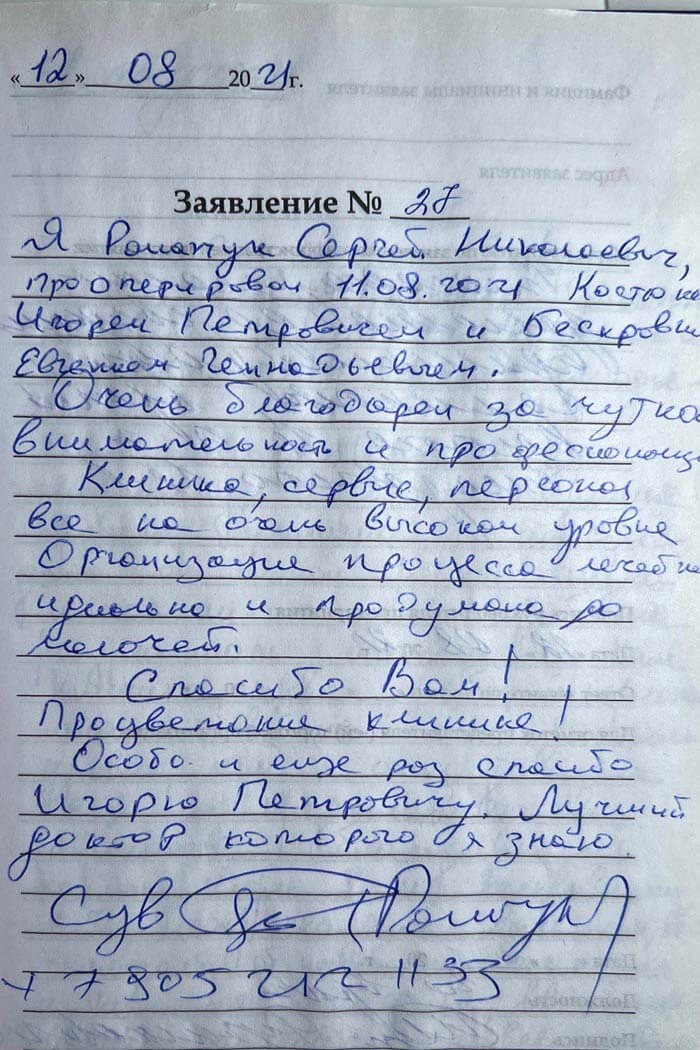 «12» 08 2021г.
Заявление № 27
Я Романук Сергей Николаевич,
прооперирован 11.08.2021 Костюко
Игорем Петровичем и Бескровн
Евгением Геннадьевичем.
Очень благодарен за чутко
внимательность и профессионац
Клиника, сервис, персонал
все на очень высоком уровне
Организация процесса
идеально и продумана до
мелочей.
Спасибо Вам!
Процветания клинике!
Особо и еще раз спасибо
Игорю Петровичу. Лучший
доктор которого я знаю.
Сув
+7905 212 1133